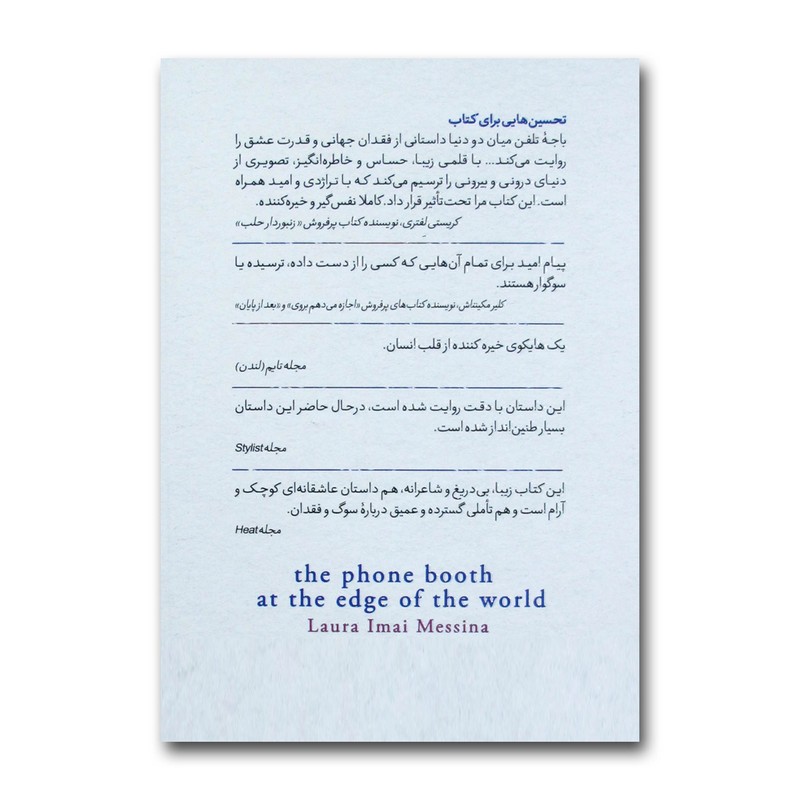 تحسین‌هایی برای کتاب
باجهٔ تلفن میان دو دنیا داستانی از فقدان جهانی و قدرت عشق را
روایت می‌کند... با قلمی زیبا، حساس و خاطره‌انگیز، تصویری از
دنیای درونی و بیرونی را ترسیم می‌کند که با تراژدی و امید همراه
است. این کتاب مرا تحت‌تأثیر قرار داد. کاملا نفس‌گیر و خیره‌کننده.
کریستی لِفتری، نویسنده کتاب پرفروش « زنبوردار حلب»
پیام امید برای تمام آن‌هایی که کسی را از دست داده، ترسیده یا
سوگوار هستند.
کلیر مکینتاش، نویسنده کتاب‌های پرفروش «اجازه می‌دهم بروی» و «بعد از پایان»
یک هایکوی خیره کننده از قلب انسان.
مجله تایم (لندن)
این داستان با دقت روایت شده است، درحال حاضر این داستان
بسیار طنین‌انداز شده است.
مجله Stylist
این کتاب زیبا، بی‌دریغ و شاعرانه، هم داستان عاشقانه‌ای کوچک و
آرام است و هم تأملی گسترده و عمیق دربارهٔ سوگ و فقدان.
مجله Heat
the phone booth
at the edge of the world
Laura Imai Messina